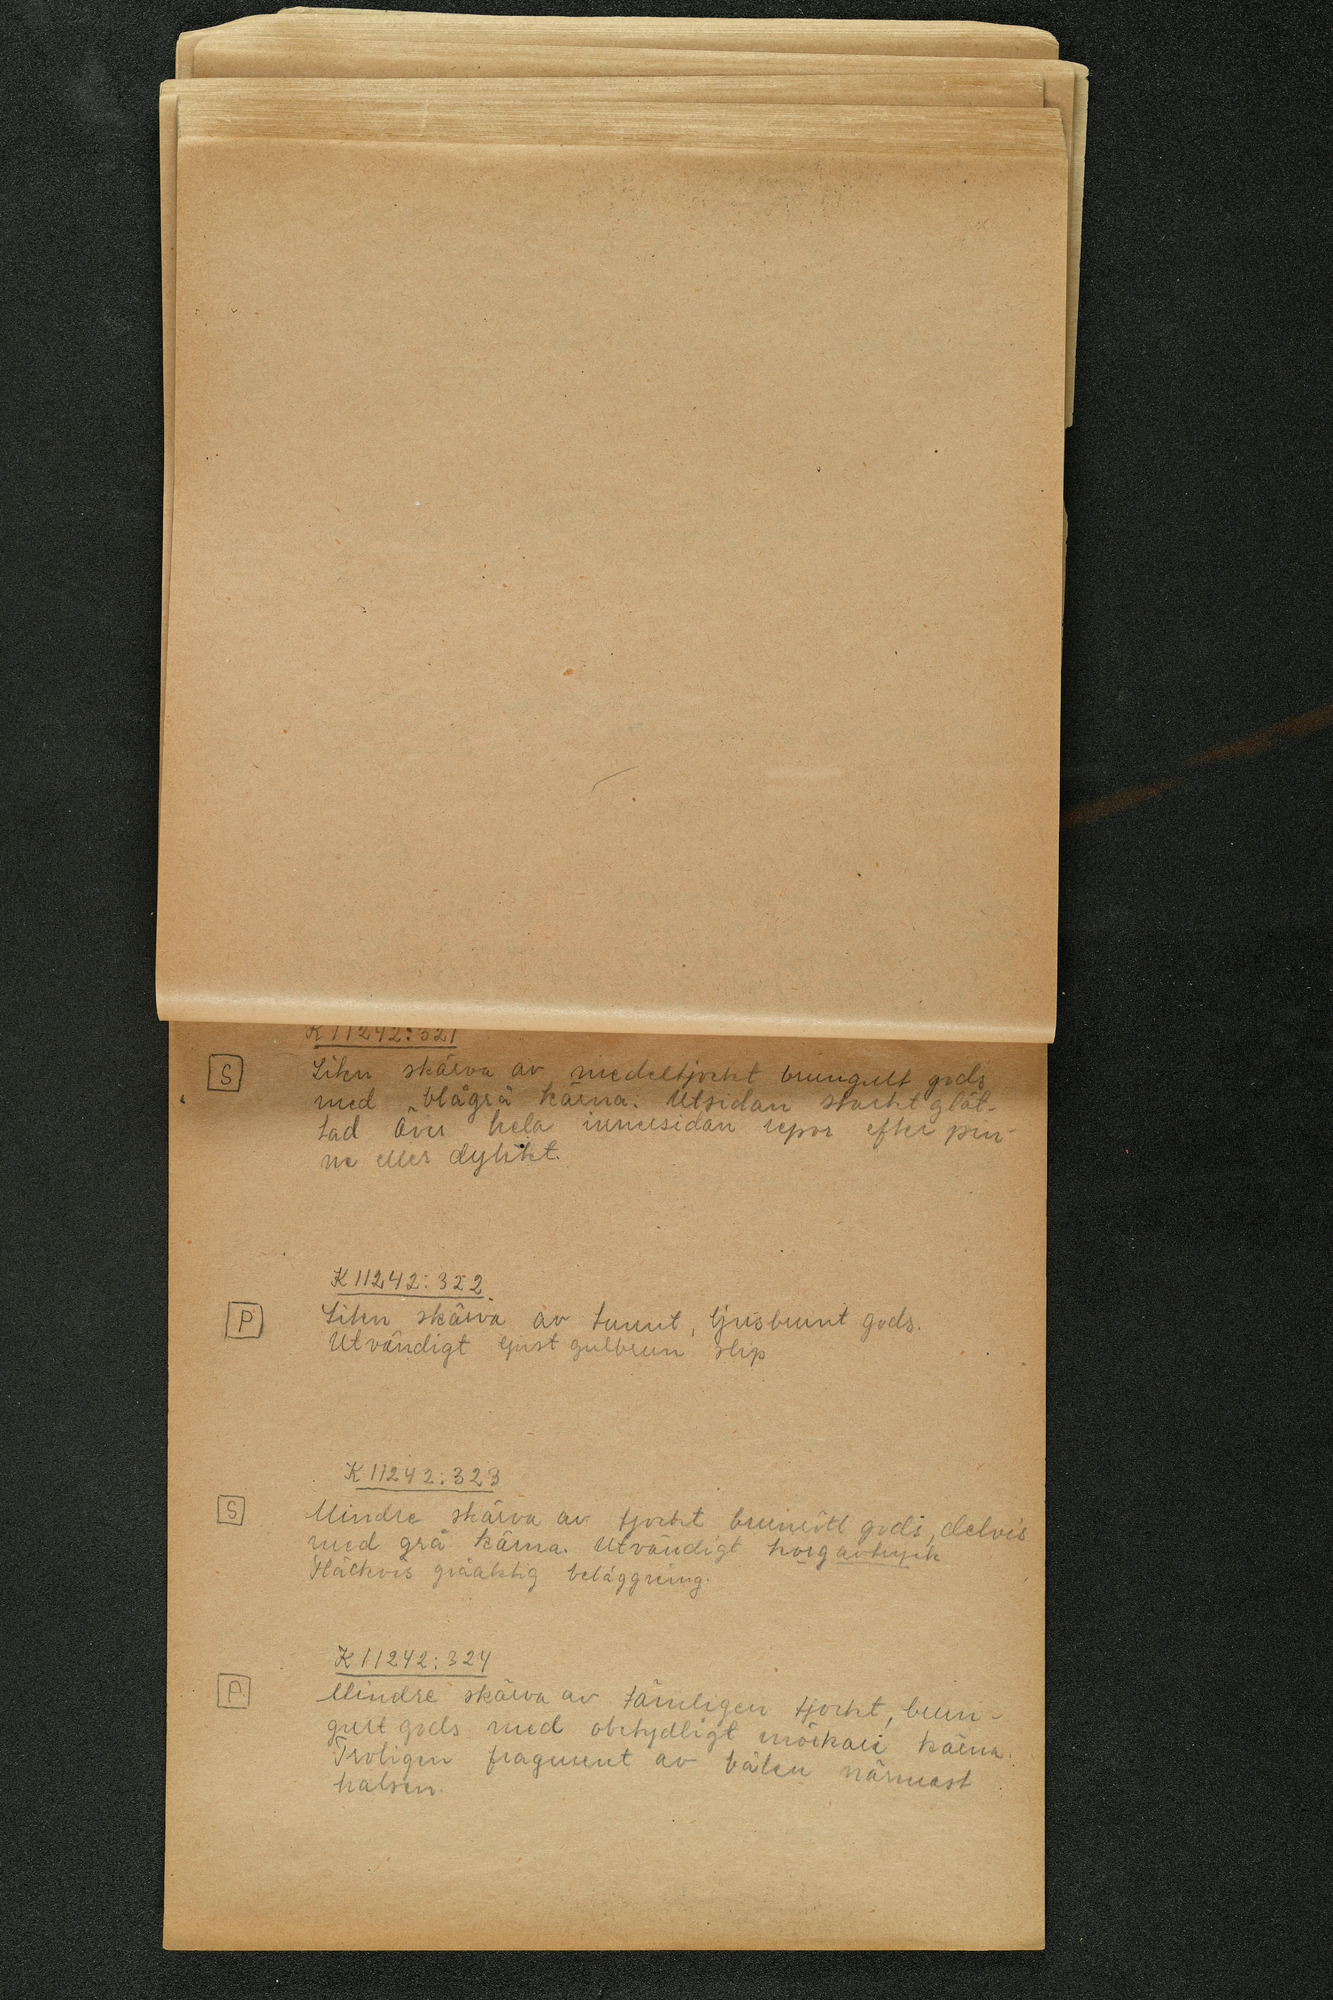 K 11242:321
S Liten skärva av medeltjockt brungult gods
med blågrå kärna. Utsidan starkt glät-
tad Över hela innersidan repor efter pin-
ne eller dylikt.
K 11242:322
P Liten skärva av tunnt, ljusbrunt gods.
Utvändigt ljust gulbrun slip
K 11242:323
S Mindre skärva av tjockt brunrött gods, delvis
med grå kärna. Utvändigt korgavtryck
Fläckvis gråaktig beläggning.
K 11242:324
P Mindre skärva av tämligen tjockt, brun-
gult gods med obetydligt mörkare kärna.
Troligen fragment av bålen närmast
halsen.